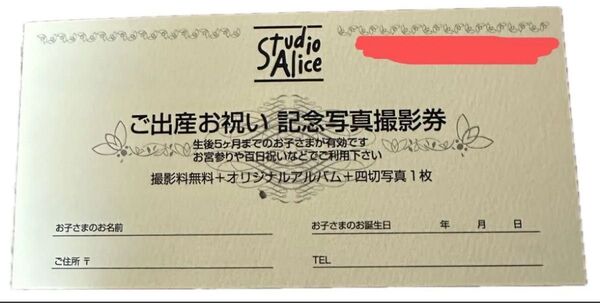 Studio
Alice
ご出産お祝い 記念写真撮影券
生後5ヶ月までのお子さまが有効です
お宮参りや百日祝いなどでご利用下さい
撮影料無料+オリジナルアルバム+四切写真1枚
お子さまのお名前
お子さまのお誕生日 年 月 日
ご住所 〒
TEL